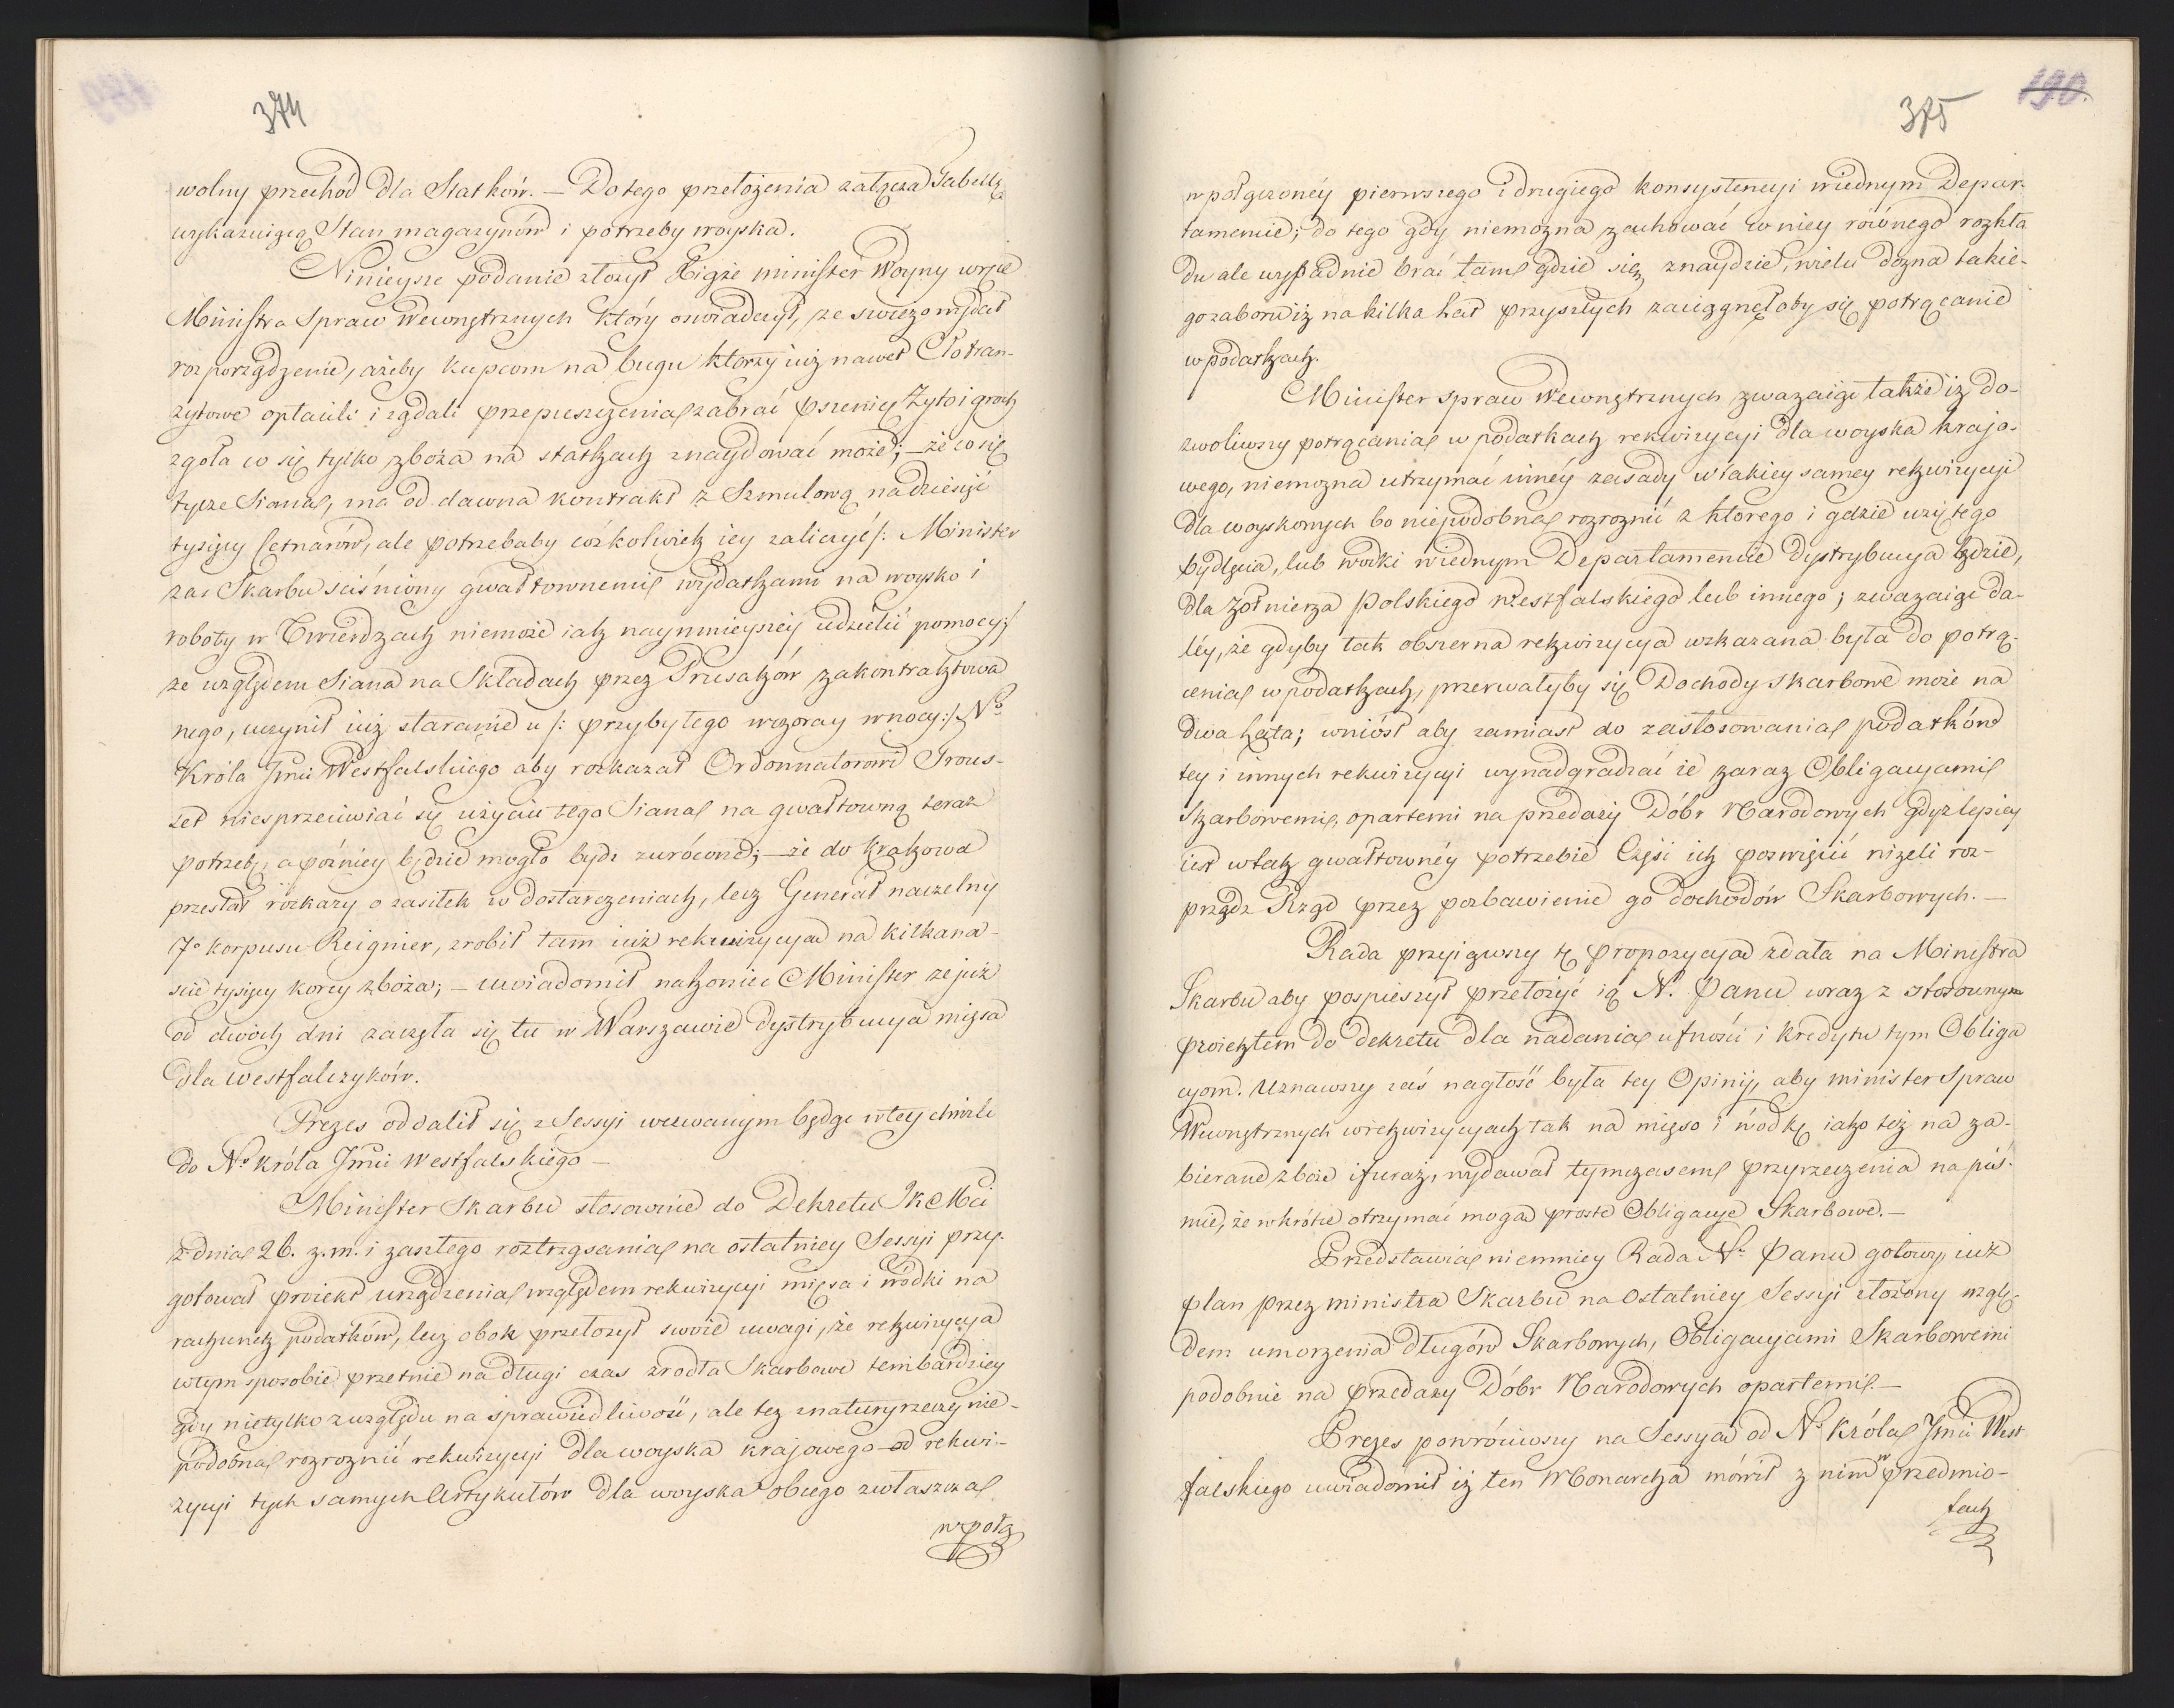 374
wolny przechód dla Statków. — Do tego przełożenia załącza Tabellę
wykazuiącą Stan magazynów i potrzeby woyska.
Ninieysze podanie złożył Xiąże minister Woyny w ręce
Ministra Spraw Wewnętrznych który oświadczył, że swieżo wydał
rozporządzenie, ażeby kupcom na bugu którzy iuż nawet Clo tran-
zytowe opłacili i żądali przepuszczenia, zabrać pszenicę Żyto i groch
zgoła co się tylko zboża na statkach znaydować może; — że co się
tycze Siana, ma od dawna kontrakt z Szmulową na dziesięć
tysięcy Cetnarów, ale potrzebaby cóżkolwiek iey zaliczyć /: Minister
zas Skarbu sciśniony gwałtownemi wydatkami na woysko i
roboty w Twierdzach niemoże iak naymnieyszéj udzielić pomocy :/
ze względem Siana na Składach przez Prusaków zakontraktowa
nego, uczynił iuż staranie u /: przybyłego wczoray w nocy :/ No
Króla Jmci Westfalskiego aby rozkazał Ordonnatorowi Trous-
set niesprzeciwiać się użyciu tego Siana na gwałtowną teraz
potrzebę, a pózniey będzie mogło bydz zwrócone; — że do Krakowa
przesłał rozkazy o zasiłek w dostarczeniach, lecz Generał naczelny
7o korpusu Reignier, zrobił tam iuż rekwizycyą na kilkana-
scie tysięcy korcy zboża; — uwiadomił nakoniec Minister że już
od dwóch dni zaczęła się tu w Warszawie dystrybucya mięsa
dla Westfalczyków.
Prezes oddalił się z Sessyi wezwanym będąc w tey chwili
do No Króla Jmci Westfalskiego —
Minister Skarbu stosownie do Dekretu JKMci
z dnia 26. z. m. i zaszłego roztrząsania na ostatniey Sessyi przy-
gotował proiekt urządzenia względem rekwizycyi mięsa i wódki na
rachunek podatków, lecz obok przełożył swoie uwagi, że rekwizycya
w tym sposobie przetnie na długi czas zrodła Skarbowe tembardziey
gdy nietylko z względu na sprawiedliwość, ale też z natury rzeczy nie-
podobna rozroznić rekwizycyi dla woyska krajowego od rekwi-
zycyi tych samych Artykułów dla woyska obcego zwłaszcza
w połą
190.
375
w połączonéy pierwszego i drugiego konsystencyi w iednym Depar-
tamencie; do tego gdy niemożna zachować w niey równego rozkła
du ale wypadnie brać tam gdzie się znaydzie, wielu dozna takie-
go zaboru iż na kilka lat przyszłych zaciągnęłoby się potrącanie
w podatkach.
Minister spraw Wewnętrznych zważaiąc także iż do-
zwoliwszy potrącania w podatkach rekwizycyi dla woyska krajo-
wego, niemożna utrzymać innéy zasady w takiey samey rekwizycyi
dla woyskowych bo niepodobna rozroznić z którego i gdzie wziętego
bydlęcia, lub wodki w iednym Departamencie dystrybucya będzie,
dla żołnierza Polskiego westfalskiego lub innego; zważaiąc da-
léy, że gdyby tak obszerna rekwizycya wskazana była do potrą-
cenia w podatkach, przerwałyby się Dochody skarbowe może na
dwa Lata; wniósł aby zamiast do zastosowania podatków
tey i innych rekwizycyi wynadgradzać ie zaraz Obligacyami
Skarbowemi, opartemi na przedaży Dóbr Narodowych gdyż lepiey
iest w tak gwałtownéy potrzebie Część ich poswięcić niżeli roz-
prządz Rząd przez pozbawienie go dochodów Skarbowych. —
Rada przyiąwszy tę propozycyą zdała na Ministra
Skarbu aby pospieszył przełożyć ią N. Panu wraz z stosownym
proiektem do dekretu dla nadania ufności i kredytu tym Obliga
cyom. Uznawszy zaś nagłość była tey Opinij, aby minister Spraw
Wewnętrznych w rekwizycyach tak na mięso i wódkę iako też na za-
bierane zboże i furaż, wydawał tymczasem przyrzeczenia na piś-
mie, że wkrótce otrzymać mogą proste Obligacye Skarbowe. —
Przedstawia niemniey Rada No Panu gotowy iuż
plan przez ministra Skarbu na Ostatniey Sessyi złożony wzglę-
dem umorzenia długów Skarbowych, Obligacyami Skarbowemi
podobnie na przedaży Dóbr Narodowych opartemi. —
Prezes powróciwszy na Sessyą od No Króla Jmci West
falskiego uwiadomił iż ten Monarcha mówił z nim w przedmio-
tach